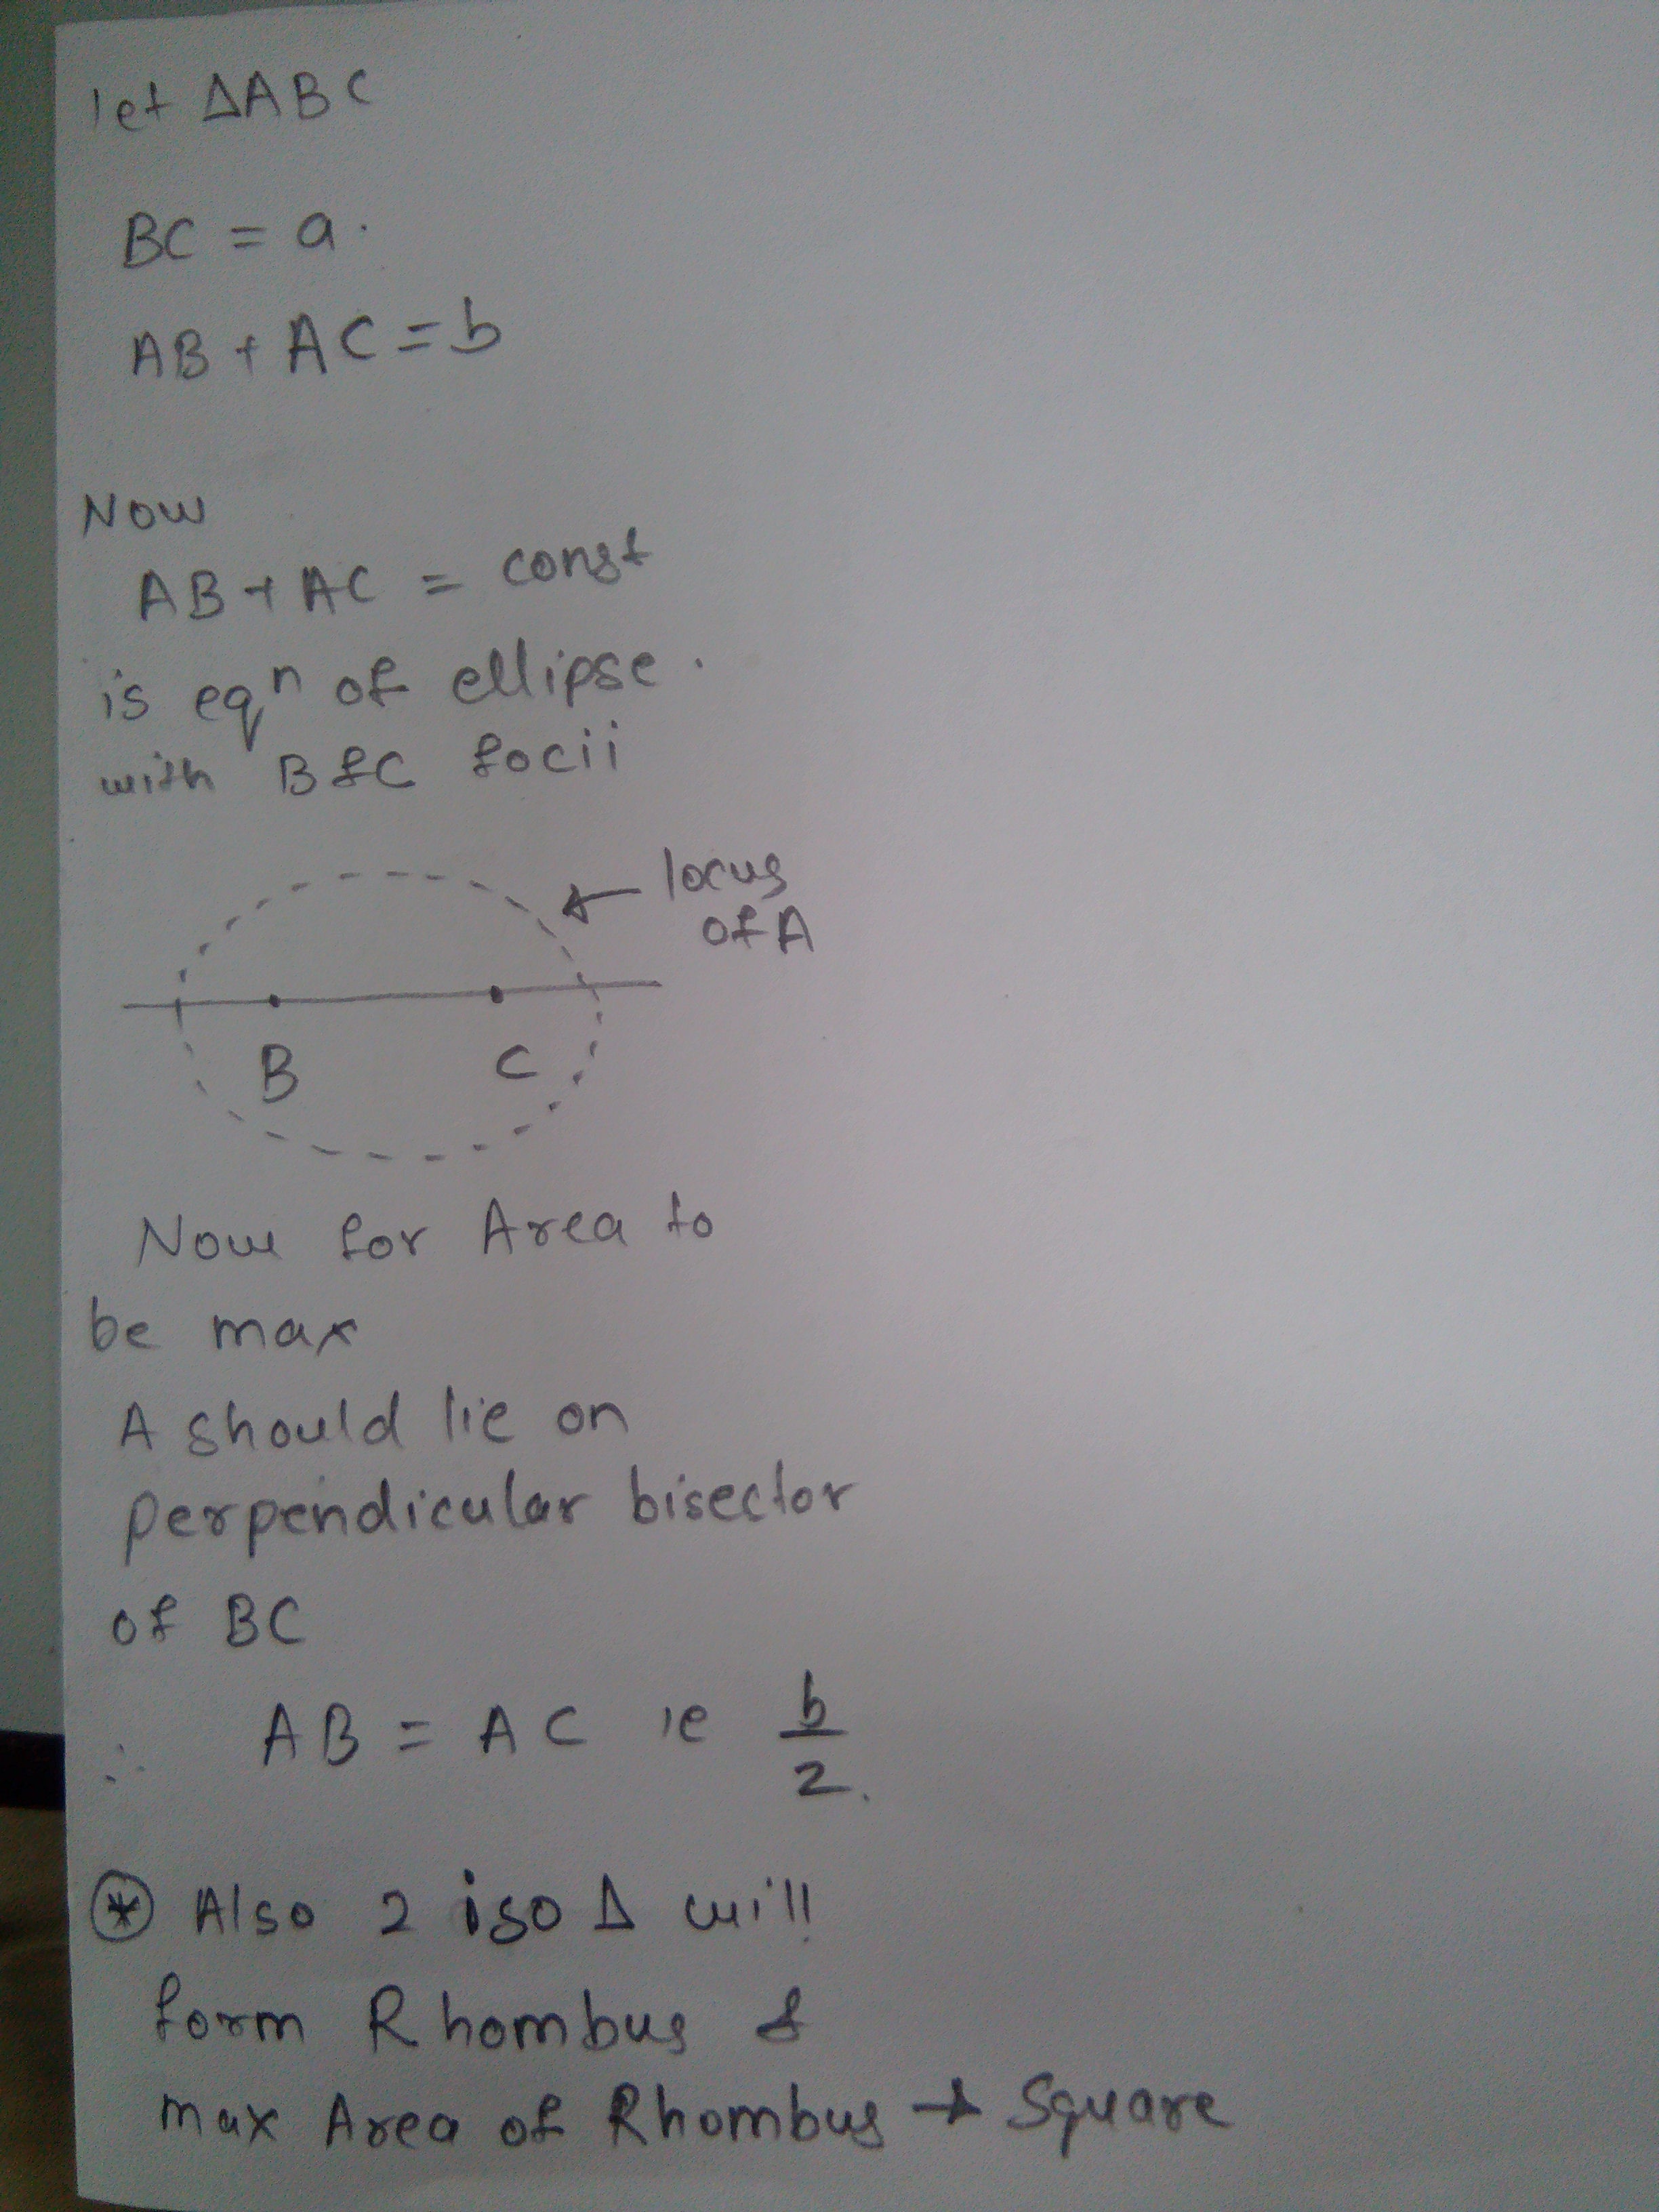 let ΔABC
BC = a.
AB + AC = b
Now
AB + AC = const
is eqⁿ of ellipse.
with B & C focii
locus
of A
B C
Now for Area to
be max
A should lie on
perpendicular bisector
of BC
∴ AB = AC ie b/2.
⊛ Also 2 iso Δ will
form Rhombus &
max Area of Rhombus → Square